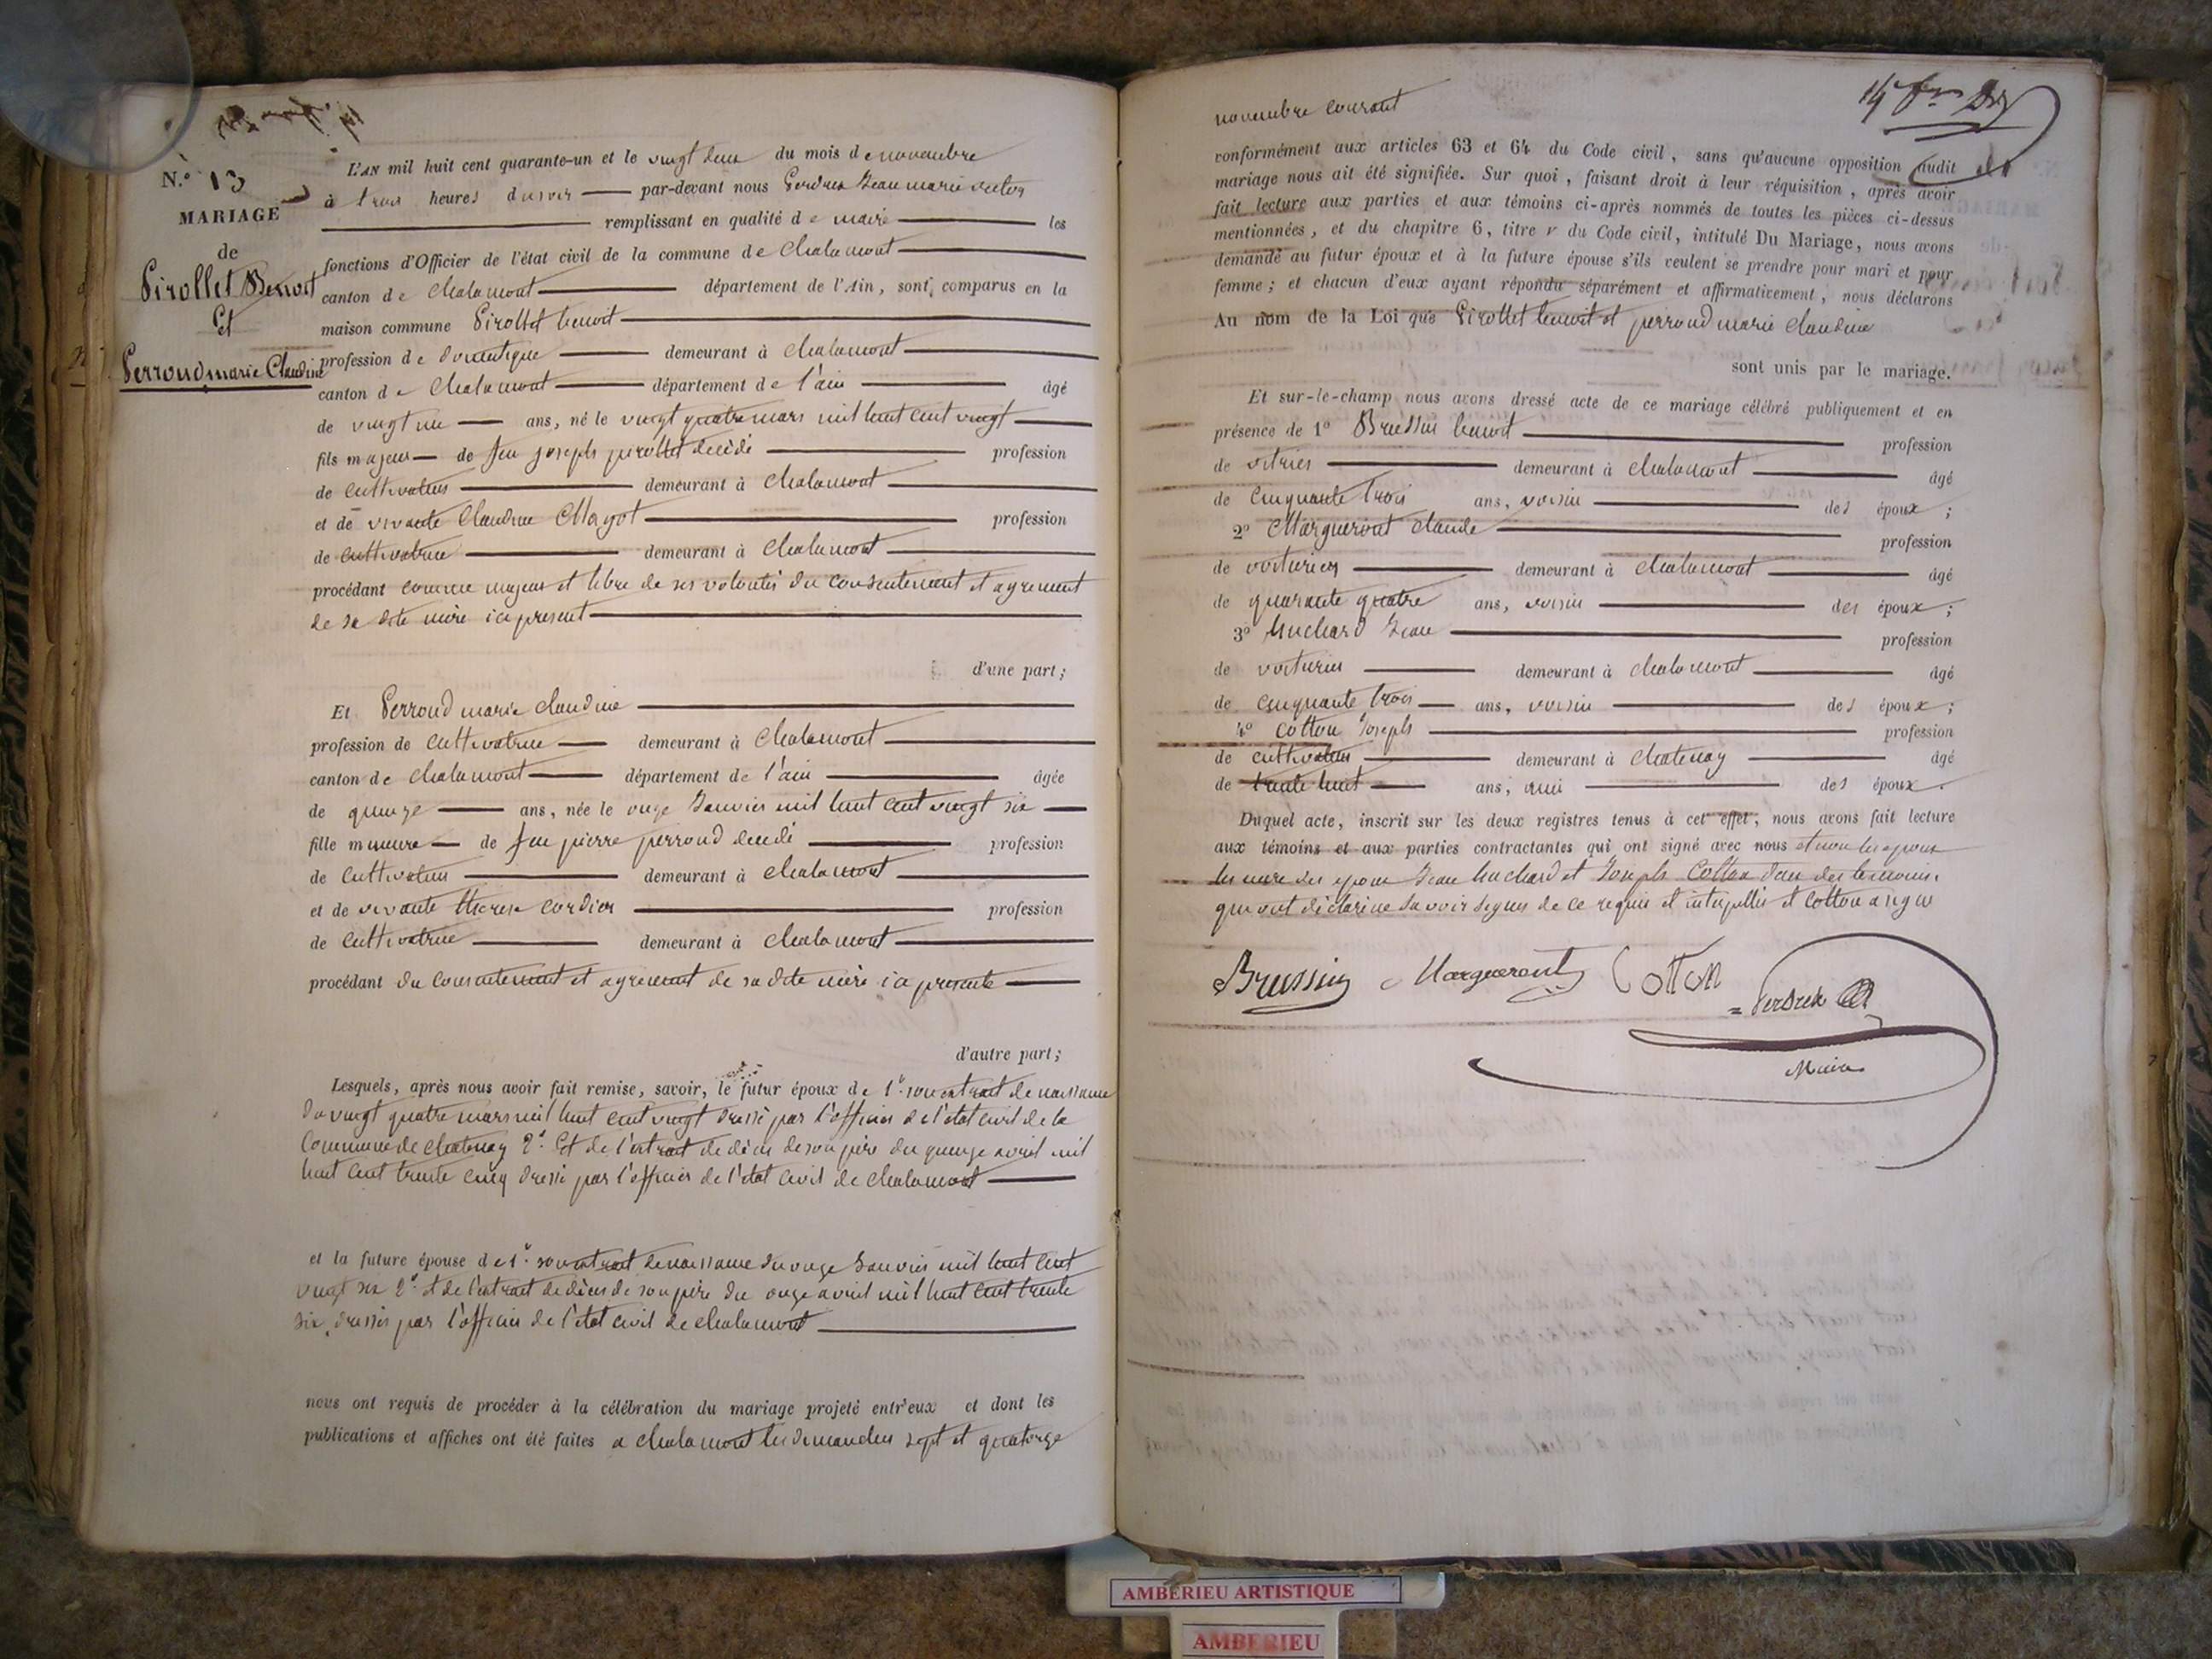 N.º 13
MARIAGE
de
Pirollet Benoit
Et
Perroud marie Claudine
L'AN mil huit cent quarante-un et le vingt deux du mois de novembre
à trois heures du soir par-devant nous Perdrix Jean marie victor
remplissant en qualité de maire les
fonctions d'Officier de l'état civil de la commune de Chalamont
canton de Chalamont département de l'Ain, sont comparus en la
maison commune Pirollet benoit
profession de domestique demeurant à Chalamont
canton de Chalamont département de l'ain âgé
de vingt un ans, né le vingt quatre mars mil huit cent vingt
fils majeur de feu joseph pirollet décédé profession
de cultivateur demeurant à Chalamont
et de vivante Claudine Magot profession
de cultivatrice demeurant à Chalamont
procédant comme majeur et libre de ses volontés du consentement et agrement
de sa dite mère ici present
d'une part;
Et Perroud marie claudine
profession de cultivatrice demeurant à Chalamont
canton de Chalamont département de l'ain âgée
de quinze ans, née le onze Janvier mil huit cent vingt six
fille mineure de feu pierre perroud décédé profession
de cultivateur demeurant à Chalamont
et de vivante therese cordier profession
de cultivatrice demeurant à Chalamont
procédant du consentement et agrement de sa dite mère ici presente
d'autre part;
Lesquels, après nous avoir fait remise, savoir, le futur époux de 1º son extrait de naissance
du vingt quatre mars mil huit cent vingt dressé par l'officier de l'état civil de la
Commune de Chatenay 2º Et de l'extrait de décès de son père du quinze avril mil
huit cent trente cinq dressé par l'officier de l'état civil de Chalamont
et la future épouse de 1º son extrait de naissance du onze Janvier mil huit cent
vingt six 2º et de l'extrait de décès de son père du onze avril mil huit cent trente
six, dressés par l'officier de l'état civil de Chalamont
nous ont requis de procéder à la célébration du mariage projeté entr'eux et dont les
publications et affiches ont été faites a Chalamont les dimanches sept et quatorze
novembre courant
conformément aux articles 63 et 64 du Code civil, sans qu'aucune opposition audit
mariage nous ait été signifiée. Sur quoi, faisant droit à leur réquisition, après avoir
fait lecture aux parties et aux témoins ci-après nommés de toutes les pièces ci-dessus
mentionnées, et du chapitre 6, titre v du Code civil, intitulé Du Mariage, nous avons
demandé au futur époux et à la future épouse s'ils veulent se prendre pour mari et pour
femme; et chacun d'eux ayant répondu séparément et affirmativement, nous déclarons
Au nom de la Loi que Pirollet benoit et perroud marie claudine
sont unis par le mariage.
Et sur-le-champ nous avons dressé acte de ce mariage célébré publiquement et en
présence de 1º Brussin benoit profession
de vitrier demeurant à chalamont âgé
de cinquante trois ans, voisin des époux;
2º Margueront claude profession
de voiturier demeurant à chalamont âgé
de quarante quatre ans, voisin des époux;
3º huchard Jean profession
de voiturier demeurant à chalamont âgé
de cinquante trois ans, voisin des époux;
4º cotton Joseph profession
de cultivateur demeurant à chatenay âgé
de trente huit ans, ami des époux.
Duquel acte, inscrit sur les deux registres tenus à cet effet, nous avons fait lecture
aux témoins et aux parties contractantes qui ont signé avec nous et non les epoux
les mere des epoux Jean huchard et Joseph Cotton d'eux des temoins
qui ont déclaré ne savoir signer de ce requis et interpellés et cotton a signé
Brussin Margueront Cotton Perdrix
Maire
AMBERIEU ARTISTIQUE
AMBERIEU